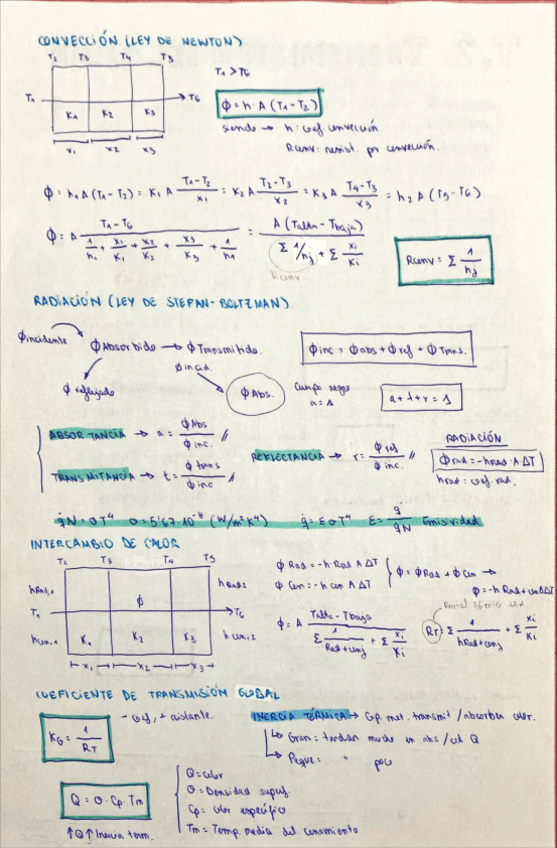 CONVECCIÓN (LEY DE NEWTON)
T2 T3 T4 T5
T1 > T6
T1 → T6
K1 K2 K3
x1 x2 x3
ϕ = h · A (T1 - T2)
siendo → h: coef convección
Rconv: resist. por convección.
ϕ = h1 A (T1 - T2) = K1 A (T1 - T2)/x1 = K2 A (T2 - T3)/x2 = K3 A (T4 - T3)/x3 = h2 A (T5 - T6)
ϕ = A (T1 - T6)/(1/h1 + x1/K1 + x2/K2 + x3/K3 + 1/h1) = A (Talta - Tbaja)/(Σ 1/hj + Σ xi/Ki)
Rconv
Rconv = Σ 1/hj
RADIACIÓN (LEY DE STEFAN-BOLTZMAN)
ϕincidente
ϕ Absorbido → ϕ Transmitido.
ϕ reflejado
ϕ incid.
ϕ Abs.
ϕ inc = ϕ abs + ϕ ref + ϕ Trans.
Cuerpo negro
a = 1
a + t + r = 1
ABSORTANCIA → a = ϕ Abs/ϕ inc. //
REFLECTANCIA → r = ϕ ref/ϕ inc. //
TRANSMITANCIA → t = ϕ trans/ϕ inc //
RADIACIÓN
ϕ rad = -hRAD · A · ΔT
hrad: coef. rad.
q̇N = σ T⁴ σ = 5'67·10⁻⁸ (W/m²K⁴) q̇ = ε σ T⁴ E = q̇/q̇N Emisividad
INTERCAMBIO DE CALOR
T2 T3 T4 T5
hRad,1 hRad2
T1 ϕ → T6
hcon,1 K1 K2 K3 hcon,2
x1 x2 x3
ϕ Rad = -h Rad A ΔT
ϕ Con = -h con A ΔT
ϕ = ϕ Rad + ϕ Con →
ϕ = -h Rad + con A ΔT
ϕ = A (Talta - Tbaja)/(Σ 1/Rad+conj + Σ xi/Ki)
RT = Σ 1/hRad+conj + Σ xi/Ki
COEFICIENTE DE TRANSMISIÓN GLOBAL
KG = 1/RT
- coef, + aislante.
INERCIA TÉRMICA → Cap. mat. transmit / absorber calor.
↳ Gran = tardan mucho en abs / ced Q
↳ Peque = " poco
Q = σ · Cp · Tm
↑Q ↑Inercia term.
Q = calor
σ = Densidad superf.
Cp = calor específico
Tm = Temp. media del cerramiento